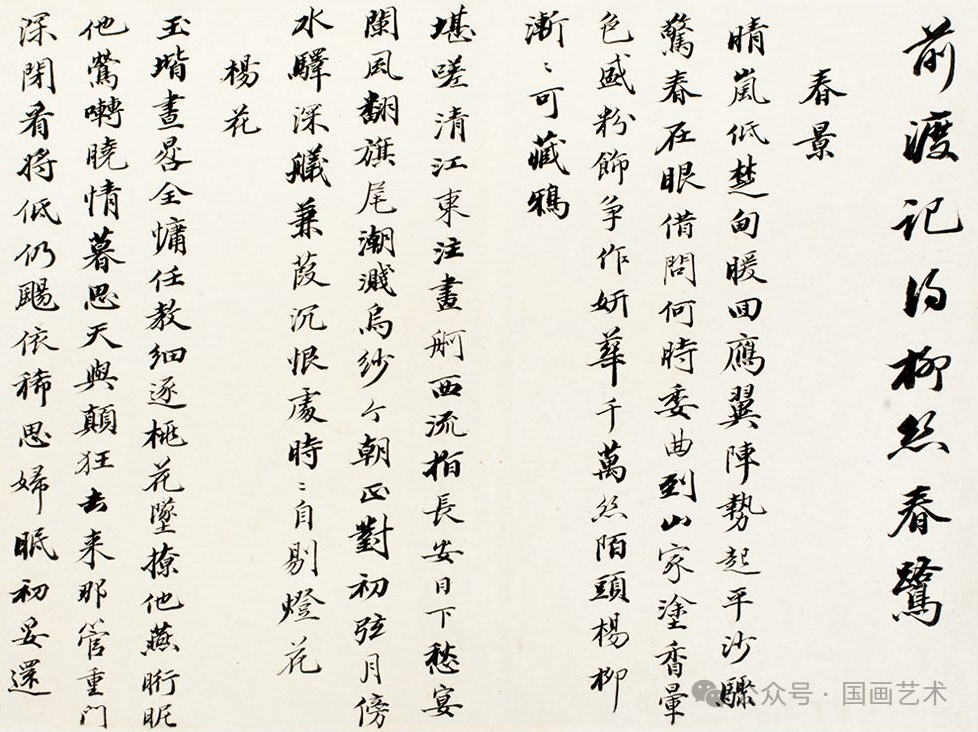 前渡記得柳絲春鷺
春景
晴嵐低楚甸暖回鴈翼陣勢起平沙驟
驚春在眼借問何時委曲到山家塗香暈
色盛粉飾爭作妍華千萬絲陌頭楊柳
漸〻可藏鴉
堪嗟清江東注畫舸西流指長安日下愁宴
闌風翻旗尾潮濺烏紗今朝正對初弦月傍
水驛深艤蒹葭沉恨處時〻自剔燈花
楊花
玉堦晝晷全慵任教細逐桃花墜撩他燕
他鶯囀曉情暮思天與顛狂去来那管重門
深閉看將低仍颺依稀思婦眠初妥還
公众号·国画艺术